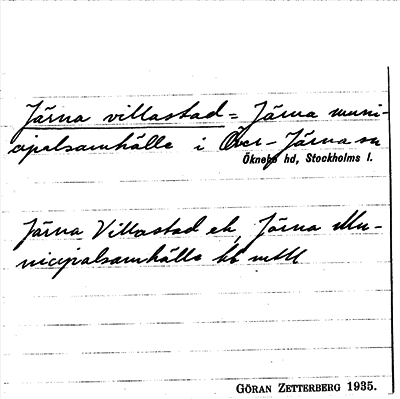 Järna villastad = Järna muni-
cipalsamhälle i Över-Järna sn
Öknebo hd, Stockholms l.
Järna Villastad ek, Järna Mu-
nicipalsamhälle
GÖRAN ZETTERBERG 1935.